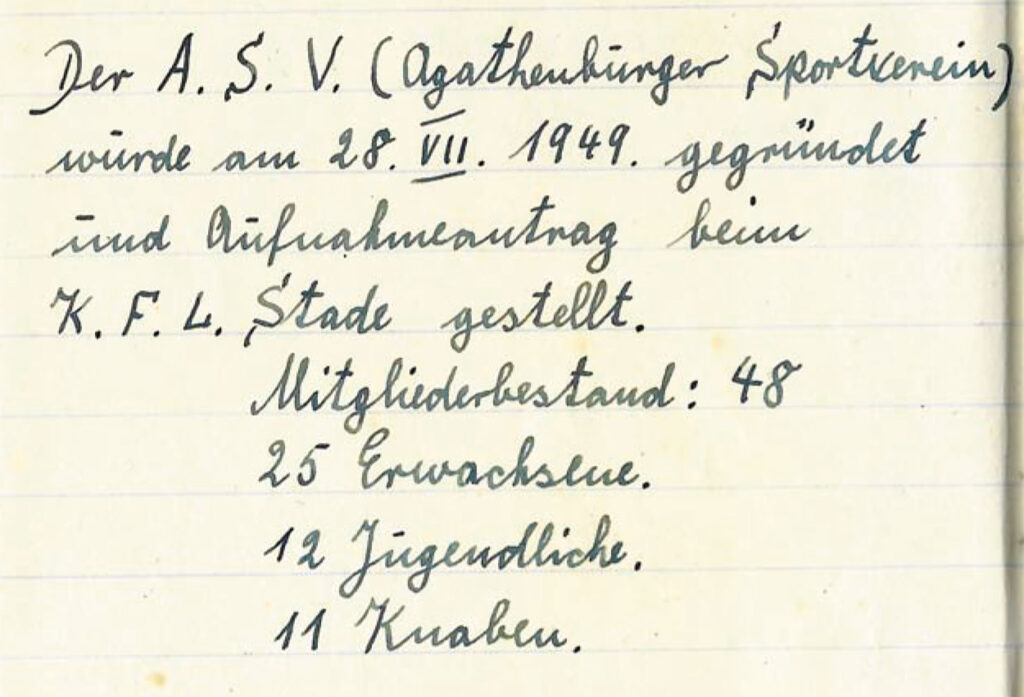 Der A. S. V. (Agathenburger Sportverein)
wurde am 28. VII. 1949. gegründet
und Aufnahmeantrag beim
K. F. L. Stade gestellt.
Mitgliederbestand: 48
25 Erwachsene.
12 Jugendliche.
11 Knaben.